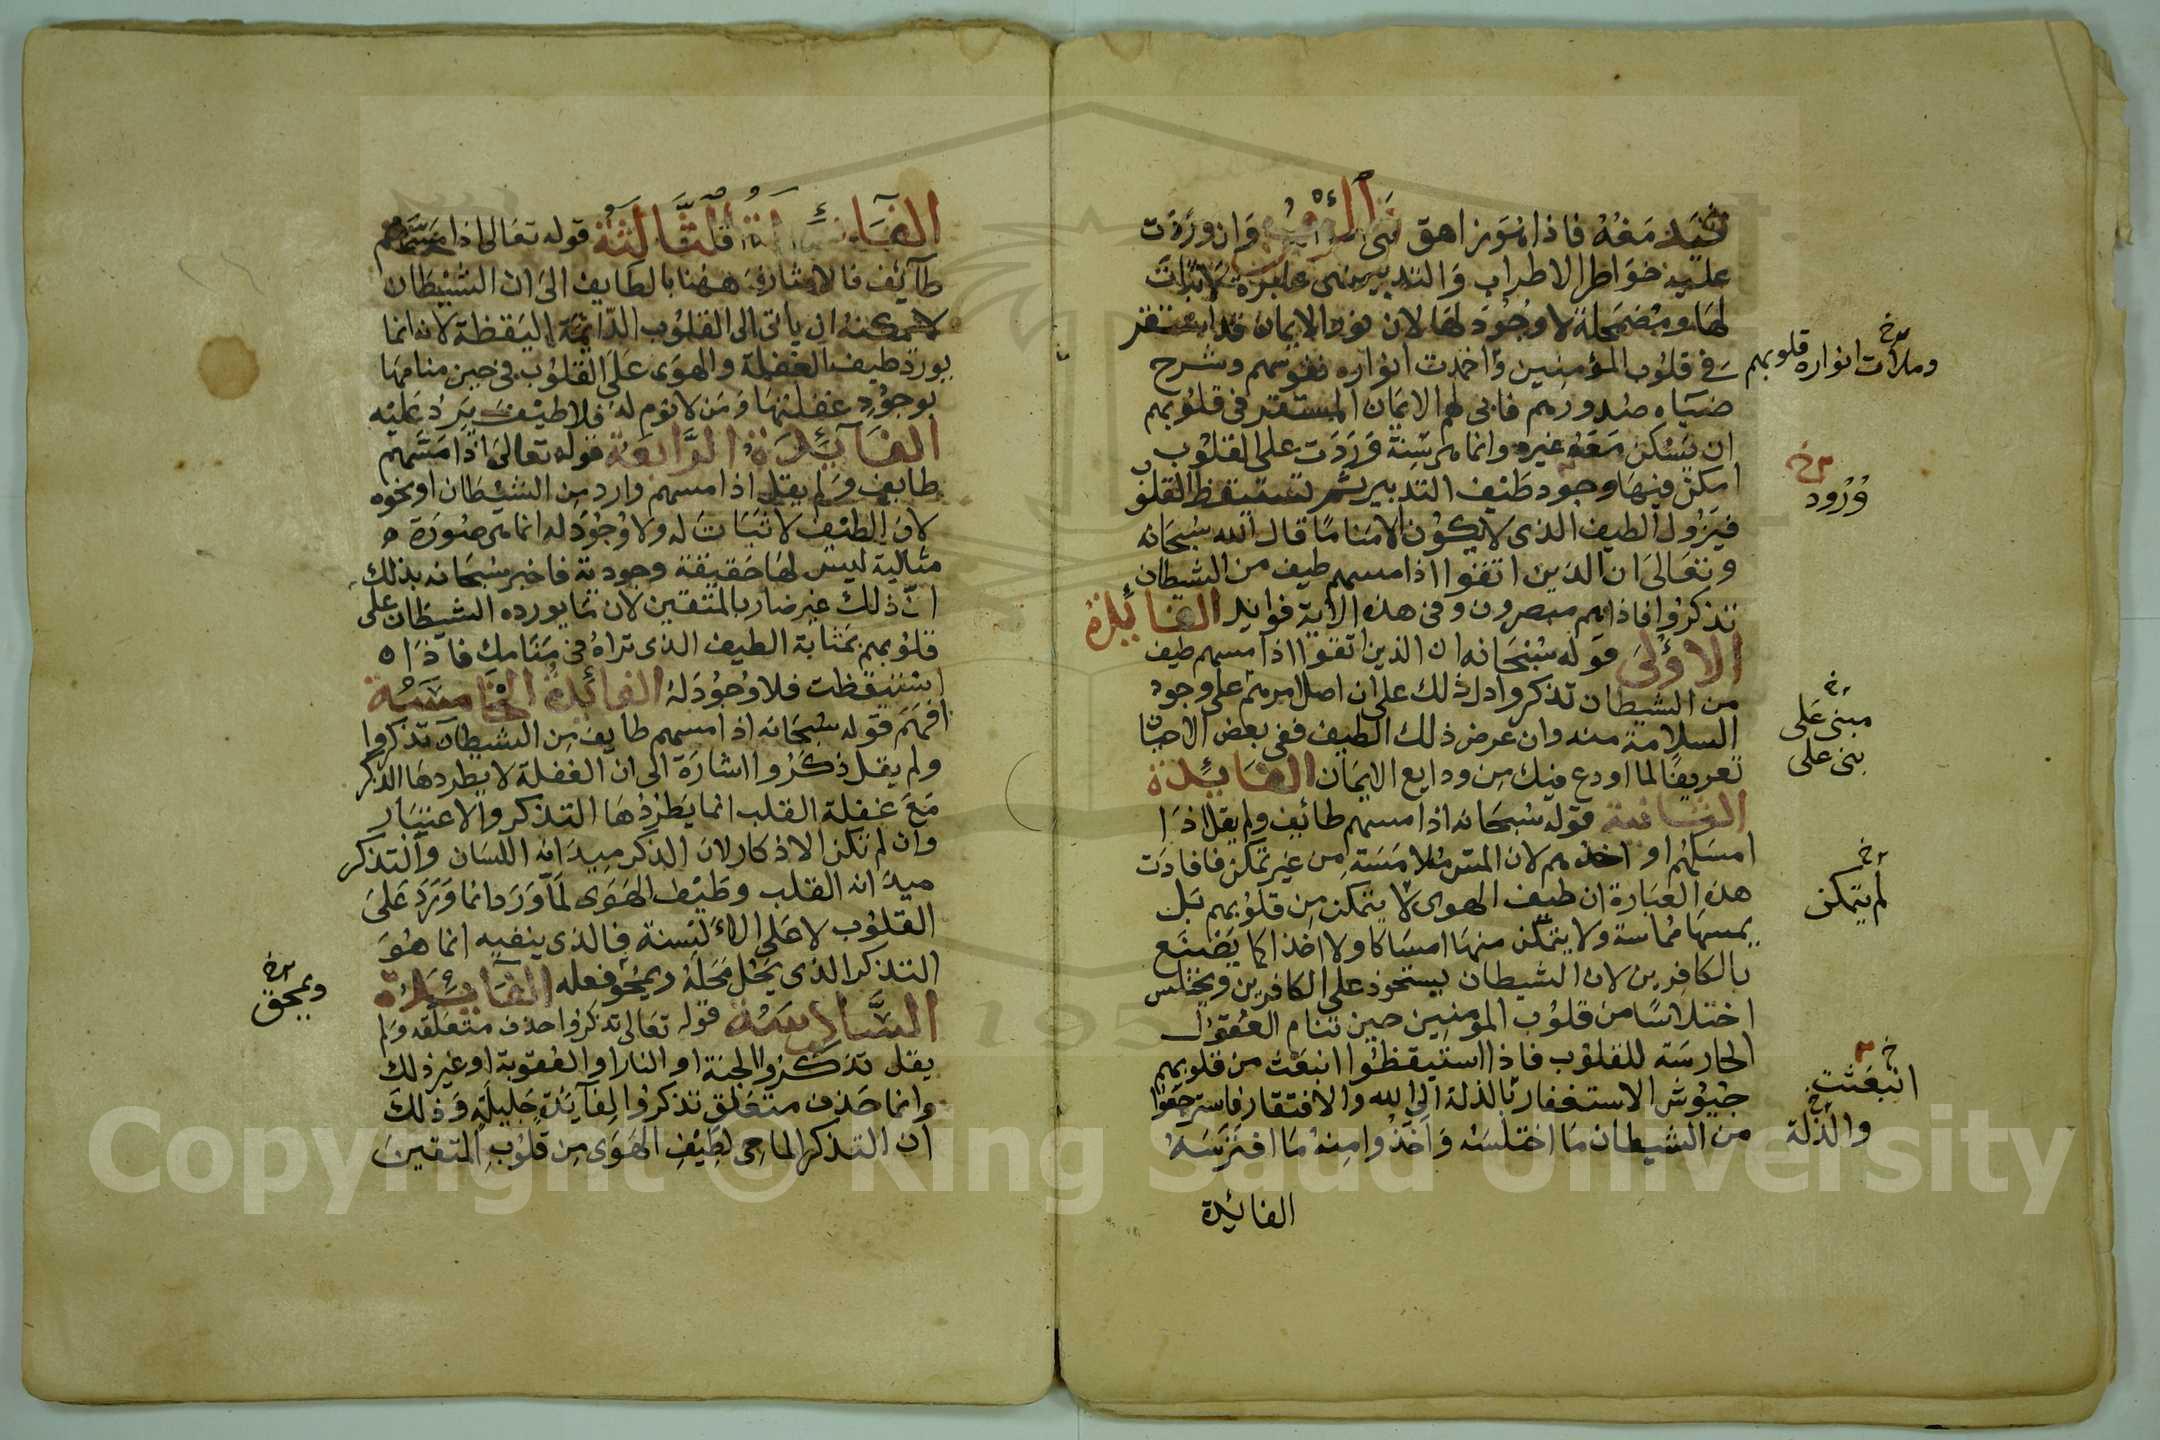 فيدمغه فاذا هو زاهق المؤمن وان وردت
عليه خواطر الاطراب والتدبير فهى عابرة لا ثبات
لها ومضمحلة لا وجود لها لان نور الايمان قد استقر
فى قلوب المؤمنين واخمدت انواره نفوسهم وشرح
ضياه صدورهم فابى لهم الايمان المستقر فى قلوبهم
ان يسكن معه غيره وانما هى سنة وردت على القلوب
امكن فيها وجود طيف التدبير ثم تستيقظ القلوب
فيزول الطيف الذى لا يكون الا مناما قال الله سبحانه
وتعالى ان الذين اتقوا اذا مسهم طيف من الشيطان
تذكروا فاذا هم مبصرون وفى هذه الآية فوايد الفائدة
الاولى قوله سبحانه ان الذين اتقوا اذا مسهم طيف
من الشيطان تذكروا دل ذلك على ان اصل امرهم على وجود
السلامة منه وان عرض ذلك الطيف ففى بعض الاحيان
تعريفا لما اودع فيك من ودايع الايمان الفائدة
الثانية قوله سبحانه اذا مسهم طائف ولم يقل اذا
امسكهم او اخذهم لان المس ملامسة من غير تمكن فافادت
هذه العبارة ان طيف الهوى لا يتمكن من قلوبهم بل
يمسها مماسة ولا يتمكن منها امساكا ولا اخذا كما يصنع
بالكافرين لان الشيطان يستحوذ على الكافرين ويختلس
اختلاسا من قلوب المومنين حين تنام العقول
الحارسة للقلوب فاذا استيقظوا انبعث من قلوبهم
جيوش الاستغفار بالذلة الى الله والافتقار فاسترجعوا
من الشيطان ما اختلسه واخذوا منه ما افترسه
الفائدة
وملأت انواره قلوبهم
ورود
مبنى على
بنى على
لم يتمكن
انبعثت
والذلة
الفائدة الثالثة قوله تعالى اذا مسهم
طآئف فالاشارة ههنا بالطايف الى ان الشيطان
لا يمكنه ان ياتى الى القلوب الدائمة اليقظة لانه انما
يورد طيف الغفلة والهوى على القلوب فى حين منامها
بوجود غفلتها ومن لا نوم له فلا طيف يرد عليه
الفائدة الرابعة قوله تعالى اذا مسهم
طايف ولم يقل اذا مسهم وارد من الشيطان او نحوه
لان الطيف لا ثبات له ولا وجود له انما هى صورة
مثالية ليس لها حقيقة وجودية فاخبر سبحانه بذلك
ان ذلك غير ضار بالمتقين لان ما يورده الشيطان على
قلوبهم بمثابة الطيف الذى تراه فى منامك فاذا
استيقظت فلا وجود له الفائدة الخامسة
افهم قوله سبحانه اذا مسهم طايف من الشيطان تذكروا
ولم يقل ذكروا اشارة الى ان الغفلة لا يطردها الذكر
مع غفلة القلب انما يطردها التذكر والاعتبار
وان لم تكن الاذكار لان الذكر ميدانه اللسان والتذكر
ميدانه القلب وطيف الهوى لما ورد انما ورد على
القلوب لا على الالسنة فالذى ينفيه انما هو
التذكر الذى يحل محله ويمحو فعله الفائدة
السادسة قوله تعالى تذكروا حذف متعلقه ولم
يقل تذكروا الجنة او النار او العقوبة او غير ذلك
وانما حذف متعلق تذكروا لفائدة جليلة وذلك
ان التذكر الماحى لطيف الهوى من قلوب المتقين
ويمحق
Copyright © King Saud University